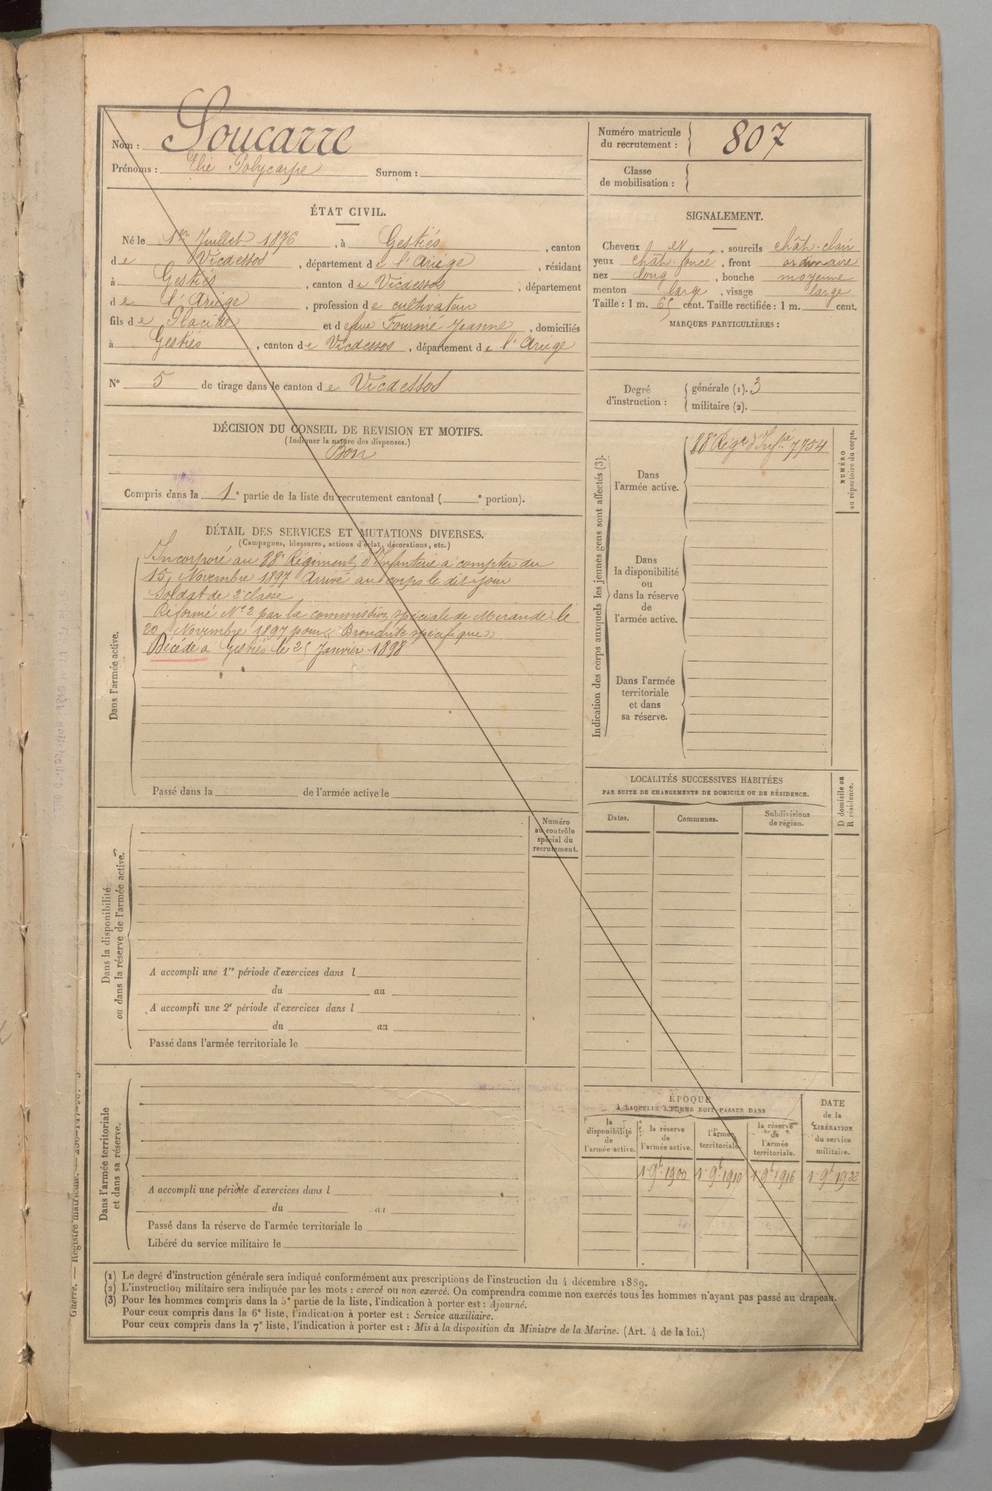 Nom : Soucarre
Prénoms : Elie Polycarpe Surnom :
Numéro matricule
du recrutement : 807
Classe
de mobilisation :
ÉTAT CIVIL.
Né le 1er Juillet 1876, à Gestiés, canton
de Vicdessos, département de l'Ariège, résidant
à Gestiés, canton de Vicdessos, département
de l'Ariège, profession de cultivateur
fils de Placide et de feue Fourmé Jeanne, domiciliés
à Gestiés, canton de Vicdessos, département de l'Ariège
N° 5 de tirage dans le canton de Vicdessos
DÉCISION DU CONSEIL DE REVISION ET MOTIFS.
(Indiquer la nature des dispenses.)
Bon
Compris dans la 1e partie de la liste du recrutement cantonal ( e portion).
DÉTAIL DES SERVICES ET MUTATIONS DIVERSES.
(Campagnes, blessures, actions d'éclat, décorations, etc.)
Dans l'armée active.
Incorporé au 88e Régiment d'Infanterie à compter du
15 Novembre 1897 Arrivé au corps le dit jour
Soldat de 2e classe
Réformé N° 2 par la commission spéciale de Mirande le
20 Novembre 1897 pour « Bronchite spécifique »
Décédé à Gestiés le 25 Janvier 1898
Passé dans la de l'armée active le
Dans la disponibilité
ou dans la réserve de l'armée active.
Numéro
au contrôle
spécial du
recrutement.
A accompli une 1re période d'exercices dans l
du au
A accompli une 2e période d'exercices dans l
du au
Passé dans l'armée territoriale le
Dans l'armée territoriale
et dans sa réserve.
A accompli une période d'exercices dans l
du au
Passé dans la réserve de l'armée territoriale le
Libéré du service militaire le
SIGNALEMENT.
Cheveux, sourcils chât-clair
yeux chât foncé, front ordinaire
nez long, bouche moyenne
menton large, visage large
Taille : 1 m. 65 cent. Taille rectifiée : 1 m. cent.
MARQUES PARTICULIÈRES :
Degré
d'instruction :
générale (1). 3
militaire (2).
Indication des corps auxquels les jeunes gens sont affectés (3).
Dans
l'armée active.
88e Régt d'Infie 7754
NUMÉRO
au répertoire du corps.
Dans
la disponibilité
ou
dans la réserve
de
l'armée active.
Dans l'armée
territoriale
et dans
sa réserve.
LOCALITÉS SUCCESSIVES HABITÉES
PAR SUITE DE CHANGEMENTS DE DOMICILE OU DE RÉSIDENCE.
Dates. Communes. Subdivisions
de région.
D domicile ou
R résidence.
ÉPOQUE
À LAQUELLE L'HOMME DOIT PASSER DANS
la
disponibilité
de
l'armée active.
la réserve
de
l'armée active.
l'armée
territoriale.
la réserve
de
l'armée
territoriale.
DATE
de la
LIBÉRATION
du service
militaire.
1 9bre 1900 1 9bre 1910 1 9bre 1916 1 9bre 1922
(1) Le degré d'instruction générale sera indiqué conformément aux prescriptions de l'instruction du 4 décembre 1889.
(2) L'instruction militaire sera indiquée par les mots : exercé ou non exercé. On comprendra comme non exercés tous les hommes n'ayant pas passé au drapeau.
(3) Pour les hommes compris dans la 5e partie de la liste, l'indication à porter est : Ajourné.
Pour ceux compris dans la 6e liste, l'indication à porter est : Service auxiliaire.
Pour ceux compris dans la 7e liste, l'indication à porter est : Mis à la disposition du Ministre de la Marine. (Art. 4 de la loi.)
Guerre. — Registre matricule.